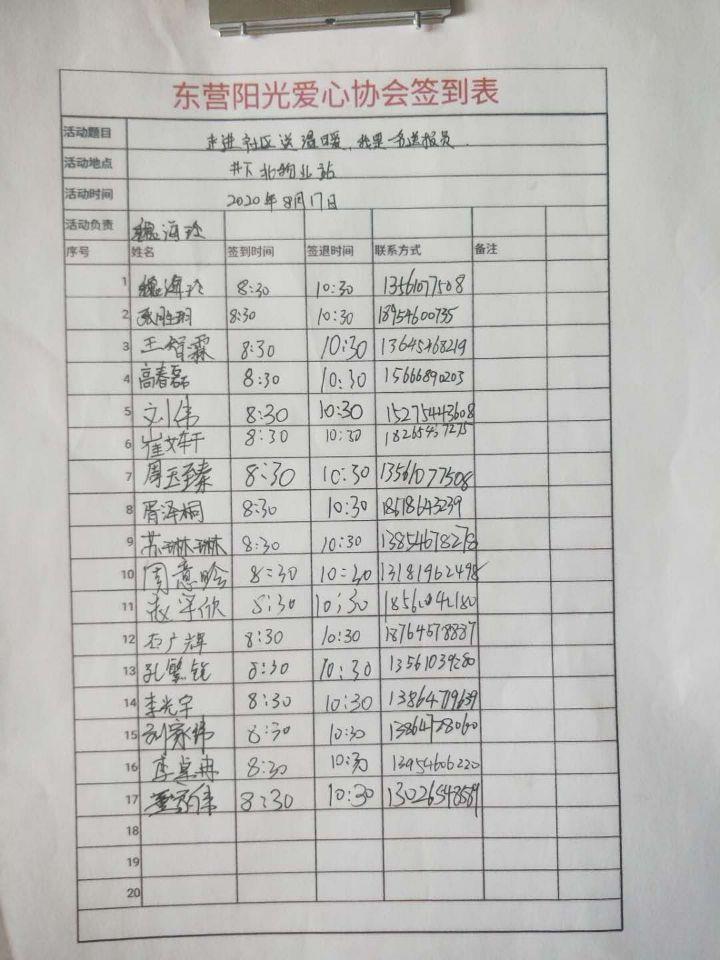 东营阳光爱心协会签到表
活动题目 走进社区送温暖，我是一名送报员.
活动地点 井下北物业站
活动时间 2020年8月17日
活动负责 魏海玲
序号 姓名 签到时间 签退时间 联系方式 备注
1 魏海玲 8:30 10:30 13561077508
2 8:30 10:30 18954600735
3 王智霖 8:30 10:30 13645468219
4 高春磊 8:30 10:30 15666890203
5 刘伟 8:30 10:30 15275443608
6 崔文轩 8:30 10:30
7 周玉臻 8:30 10:30 13561077508
8 胥泽桐 8:30 10:30 18618643239
9 苏琳琳 8:30 10:30 13854678278
10 周意晗 8:30 10:30 13181962498
11 赵宇欣 8:30 10:30 18562042180
12 石广辉 8:30 10:30 18764578837
13 孔繁锐 8:30 10:30 13561039280
14 李光宇 8:30 10:30 13864719639
15 刘家炜 8:30 10:30 13864728060
16 李卓冉 8:30 10:30 13954606220
17 8:30 10:30
18
19
20